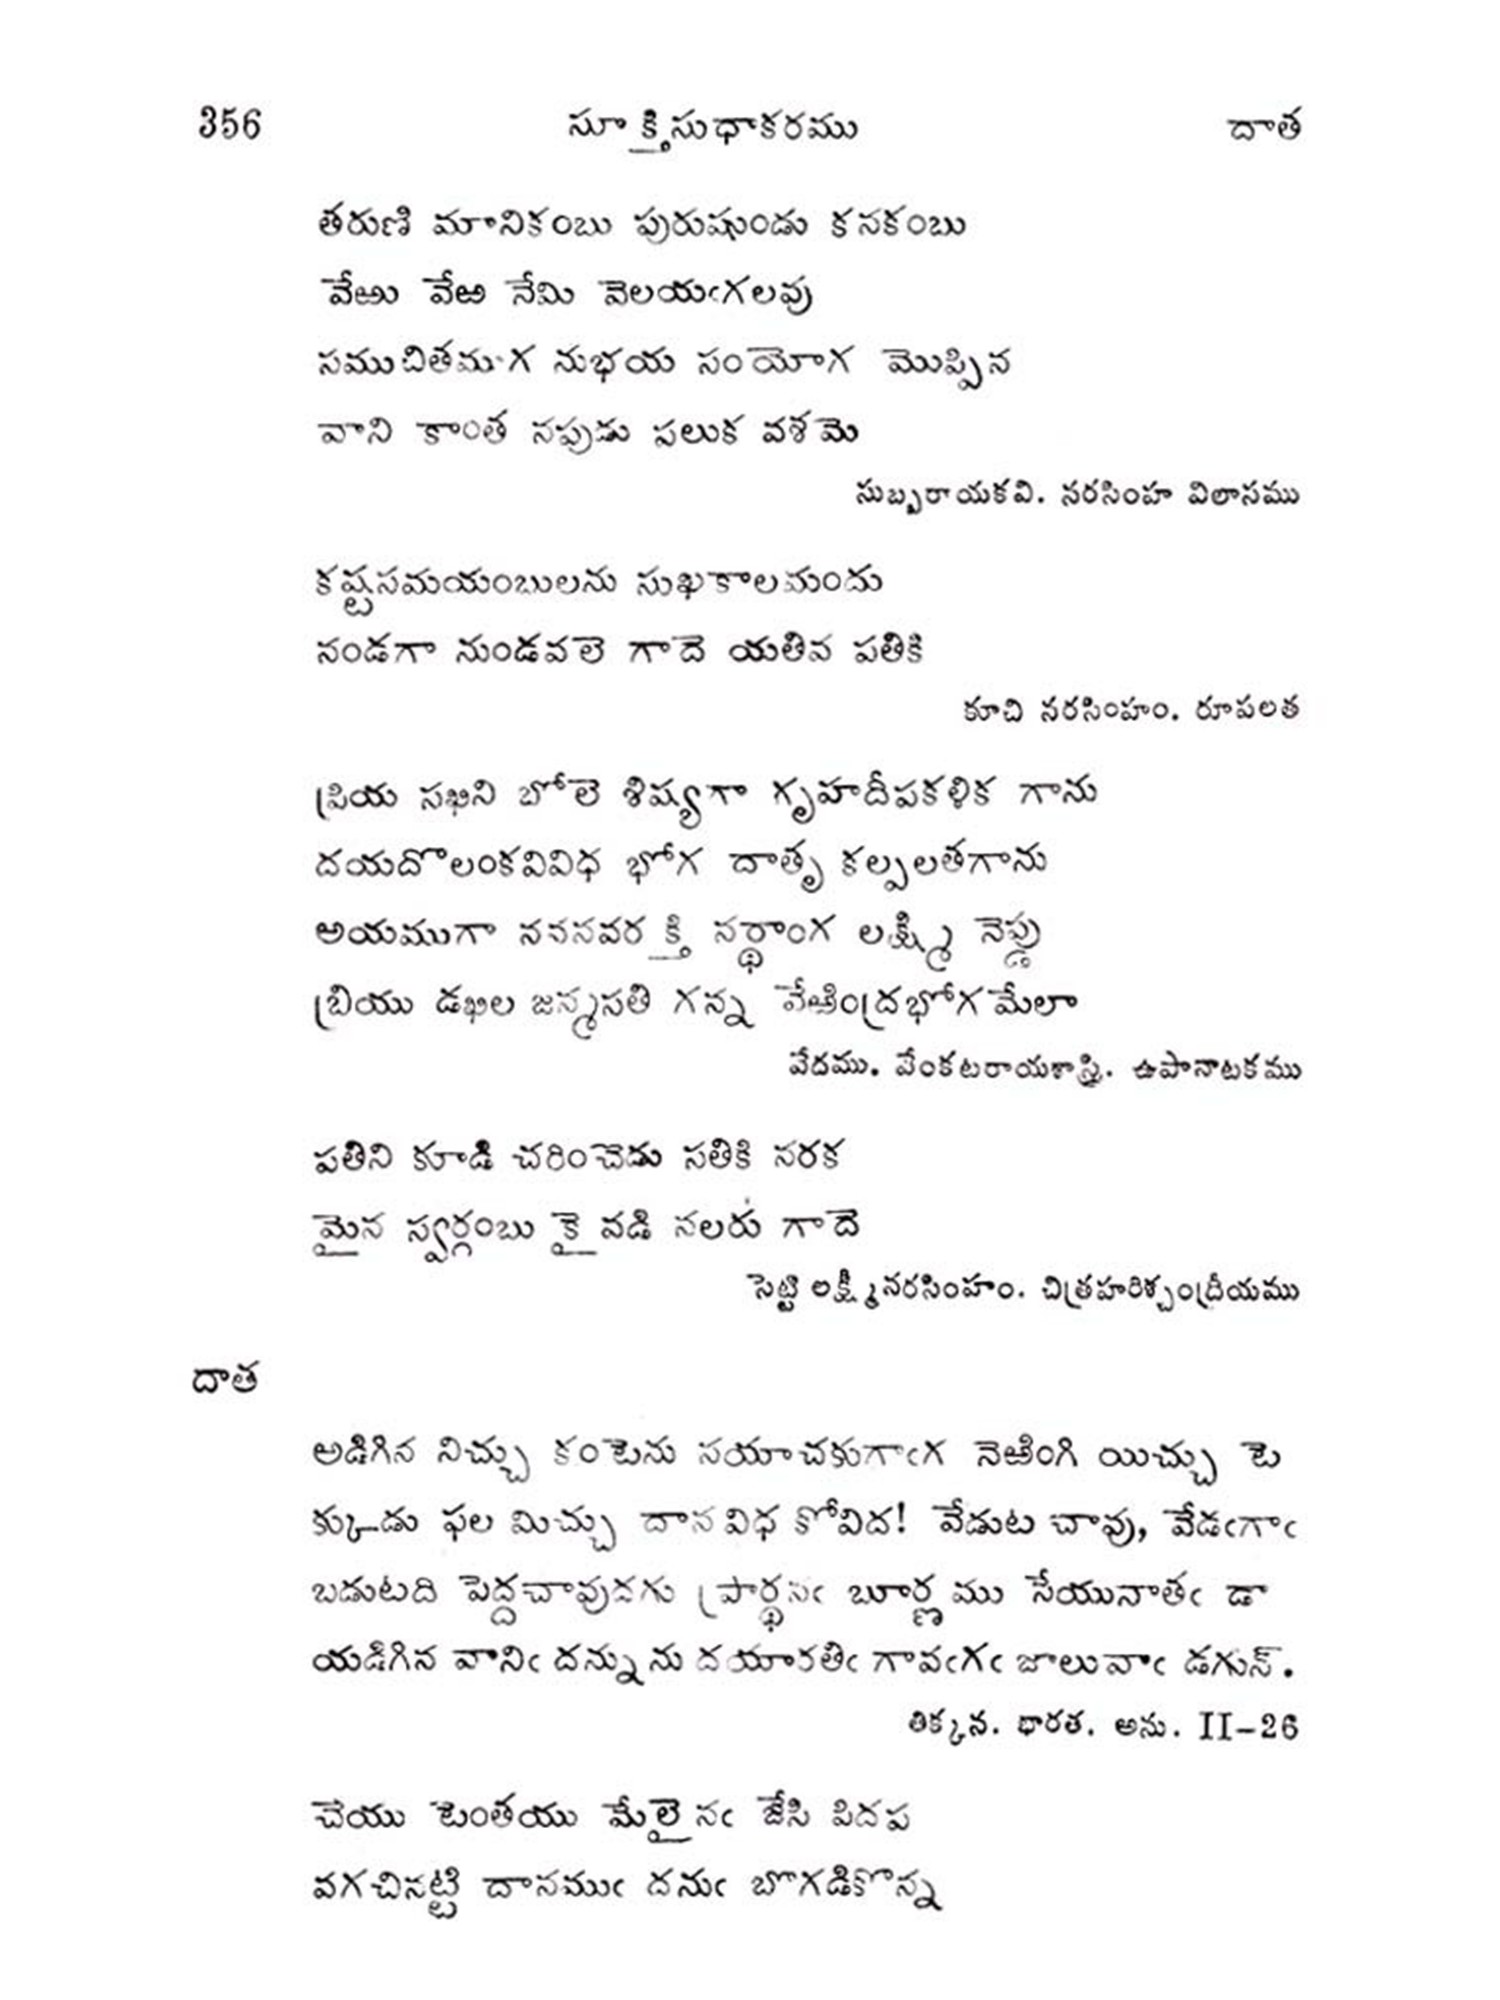 356 సూక్తిసుధాకరము దాత
తరుణి మానికంబు పురుషుండు కనకంబు
వేఱు వేఱ నేమి వెలయఁగలవు
సముచితముగ నుభయ సంయోగ మొప్పిన
వాని కాంత నప్పుడు పలుక వశమె
సుబ్బరాయకవి. నరసింహ విలాసము
కష్టసమయంబులను సుఖకాలమందు
నండగా నుండవలె గాదె యతివ పతికి
కూచి నరసింహం. రూపలత
ప్రియ సఖిని బోలె శిష్యగా గృహదీపకళిక గాను
దయదొలంకవివిధ భోగ దాతృ కల్పలతగాను
అయముగా ననవరక్తి నర్థాంగ లక్ష్మి నెప్డు
బ్రియు డఖిల జన్మసతి గన్న వేఱింద్రభోగమేలా
వేదము. వేంకటరాయశాస్త్రి. ఉషానాటకము
పతిని కూడి చరించెడు సతికి నరక
మైన స్వర్గంబు కైవడి నలరు గాదె
సెట్టి లక్ష్మీనరసింహం. చిత్రహరిశ్చంద్రీయము
దాత
అడిగిన నిచ్చు కంటెను నయాచకుగాఁగ నెఱింగి యిచ్చు టె
క్కుడు ఫల మిచ్చు దానవిధ కోవిద! వేడుట చావు, వేడఁగాఁ
బడుటది పెద్దచావుడగు ప్రార్థనఁ బూర్ణము సేయునాతఁ డా
యడిగిన వానిఁ దన్నును దయామతిఁ గావఁగఁ జాలువాఁ డగున్.
తిక్కన. భారత. అను. II-26
చేయు టెంతయు మేలైనఁ జేసి పిదప
వగచినట్టి దానముఁ దనుఁ బొగడికొన్న